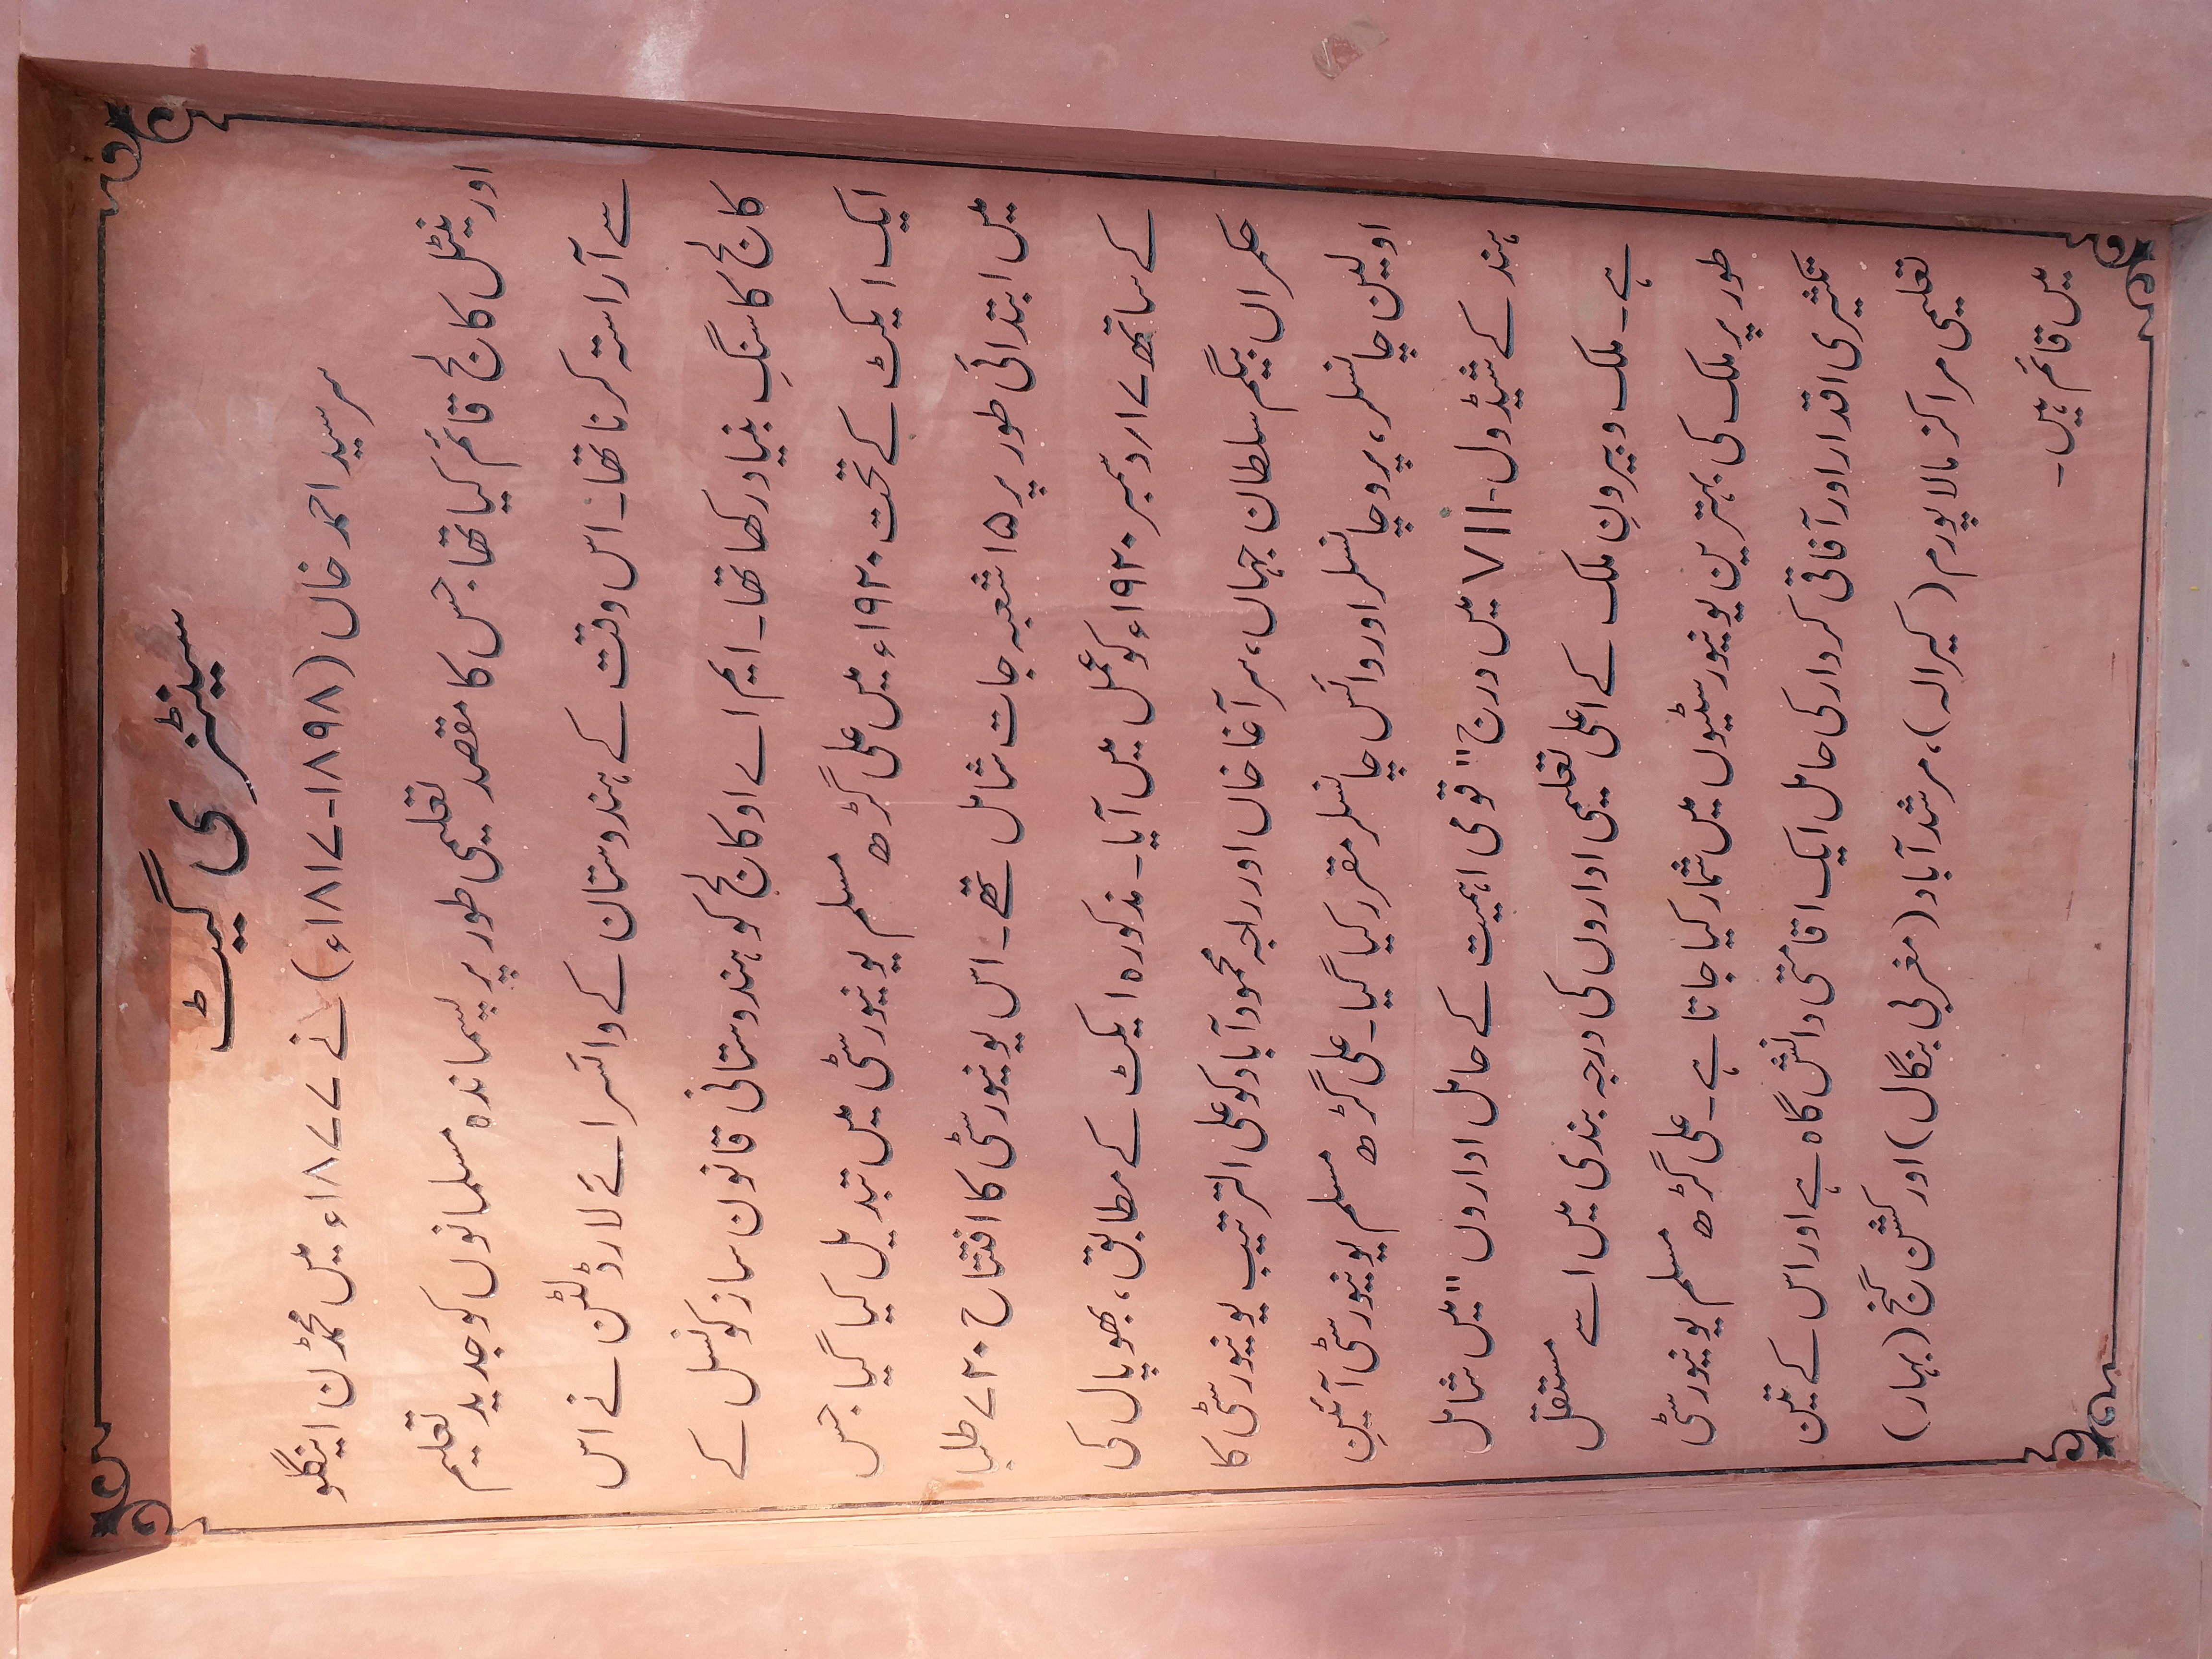 سینٹنری گیٹ
سرسید احمد خاں (۱۸۱۷-۱۸۹۸ء) نے ۱۸۷۷ء میں محمڈن اینگلو
اورینٹل کالج قائم کیا تھا جس کا مقصد تعلیمی طور پر پسماندہ مسلمانوں کو جدید تعلیم
سے آراستہ کرنا تھا۔ اس وقت کے ہندوستان کے وائسرائے لارڈ لٹن نے اس
کالج کا سنگِ بنیاد رکھا تھا۔ ایم اے او کالج کو ہندوستانی قانون ساز کونسل کے
ایک ایکٹ کے تحت ۱۹۲۰ء میں علی گڑھ مسلم یونیورسٹی میں تبدیل کیا گیا جس
میں ابتدائی طور پر ۱۵ شعبہ جات شامل تھے۔ اس یونیورسٹی کا افتتاح ۷۲۰ طلبا
کے ساتھ ۱۷؍دسمبر ۱۹۲۰ء کو عمل میں آیا۔ مذکورہ ایکٹ کے مطابق، بھوپال کی
حکمراں بیگم سلطان جہاں، سر آغا خاں اور راجہ محمود آباد کو علی الترتیب یونیورسٹی کا
اولین چانسلر، پرو چانسلر اور وائس چانسلر مقرر کیا گیا۔ علی گڑھ مسلم یونیورسٹی آئینِ
ہند کے شیڈول-VII میں درج "قومی اہمیت کے حامل اداروں" میں شامل
ہے۔ ملک و بیرونِ ملک کے اعلی تعلیمی اداروں کی درجہ بندی میں اسے مستقل
طور پر ملک کی بہترین یونیورسٹیوں میں شمار کیا جاتا ہے۔ علی گڑھ مسلم یونیورسٹی
تکثیری اقدار اور آفاقی کردار کی حامل ایک اقامتی دانش گاہ ہے اور اس کے تین
تعلیمی مراکز مالاپورم (کیرالہ)، مرشد آباد (مغربی بنگال) اور کشن گنج (بہار)
میں قائم ہیں۔